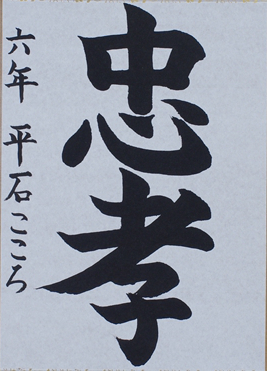 忠孝
六年 平石こころ